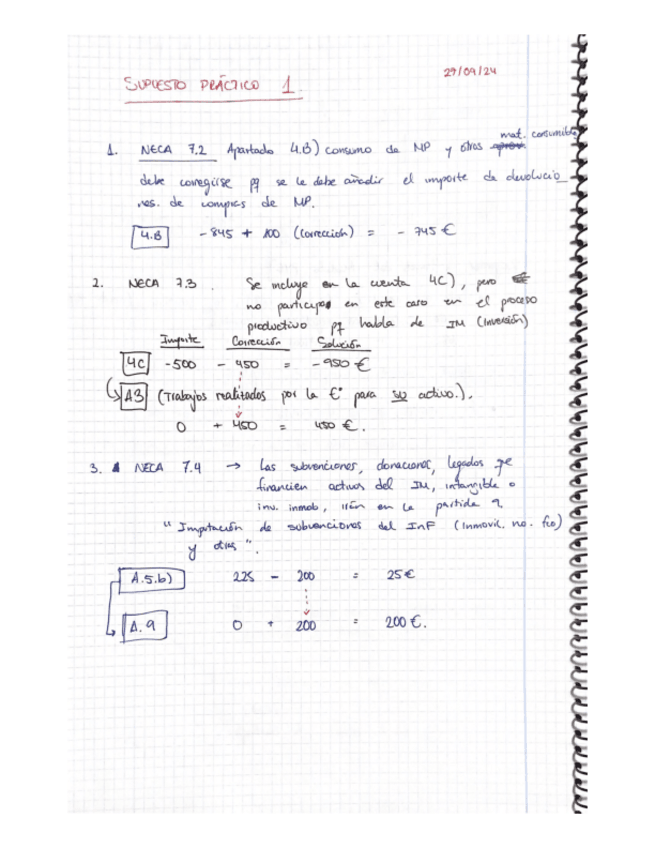 SUPUESTO PRÁCTICO 1.
29/09/24
1. NECA 7.2 Apartado 4.B) consumo de MP y otros mat. consumible
debe corregirse pq se le debe añadir el importe de devolucio
nes. de compras de MP.
4.B - 845 + 100 (Corrección) = - 745 €
2. NECA 7.3. Se incluye en la cuenta 4C), pero
no participa en este caso en el proceso
productivo pq habla de IM (Inversión)
Importe Corrección Solución
4C -500 - 450 = - 950 €
A3 (Trabajos realizados por la Eª para su activo.).
0 + 450 = 450 €.
3. NECA 7.4 → Las subvenciones, donaciones, legados que
financien activos del IM, intangible o
inv. inmob, irán en la partida 9.
" Imputación de subvenciones del InF (Inmovil. no. fro)
y otras ".
A.5.b) 225 - 200 = 25 €
A.9 0 + 200 = 200 €.